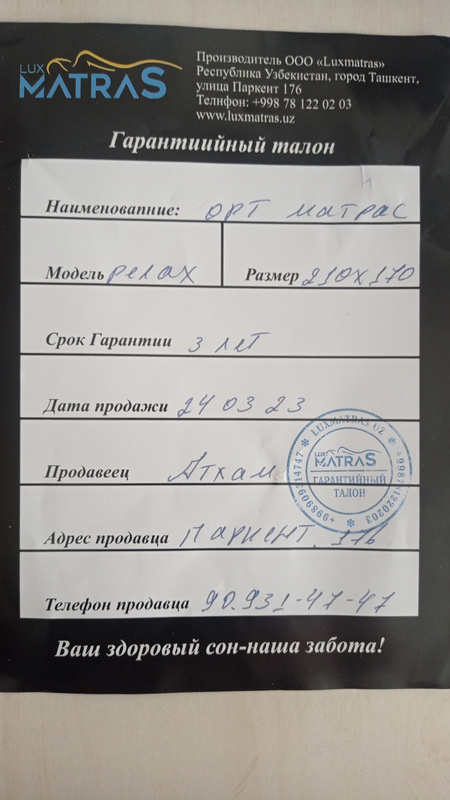 LUX
MATRAS
Производитель ООО «Luxmatras»
Республика Узбекистан, город Ташкент,
улица Паркент 176
Телнфон: +998 78 122 02 03
www.luxmatras.uz
Гарантиийный талон
Наименовапние: орт матрас
Модель релах Размер 210х170
Срок Гарантии 3 лет
Дата продажи 24 03 23
Продавеец Атхам
Адрес продавца Паркент. 176
Телефон продавца 90.931-47-47
LUXMATRAS UZ
+998781220203
+998909314747
LUX
MATRAS
ГАРАНТИЙНЫЙ
ТАЛОН
Ваш здоровый сон-наша забота!